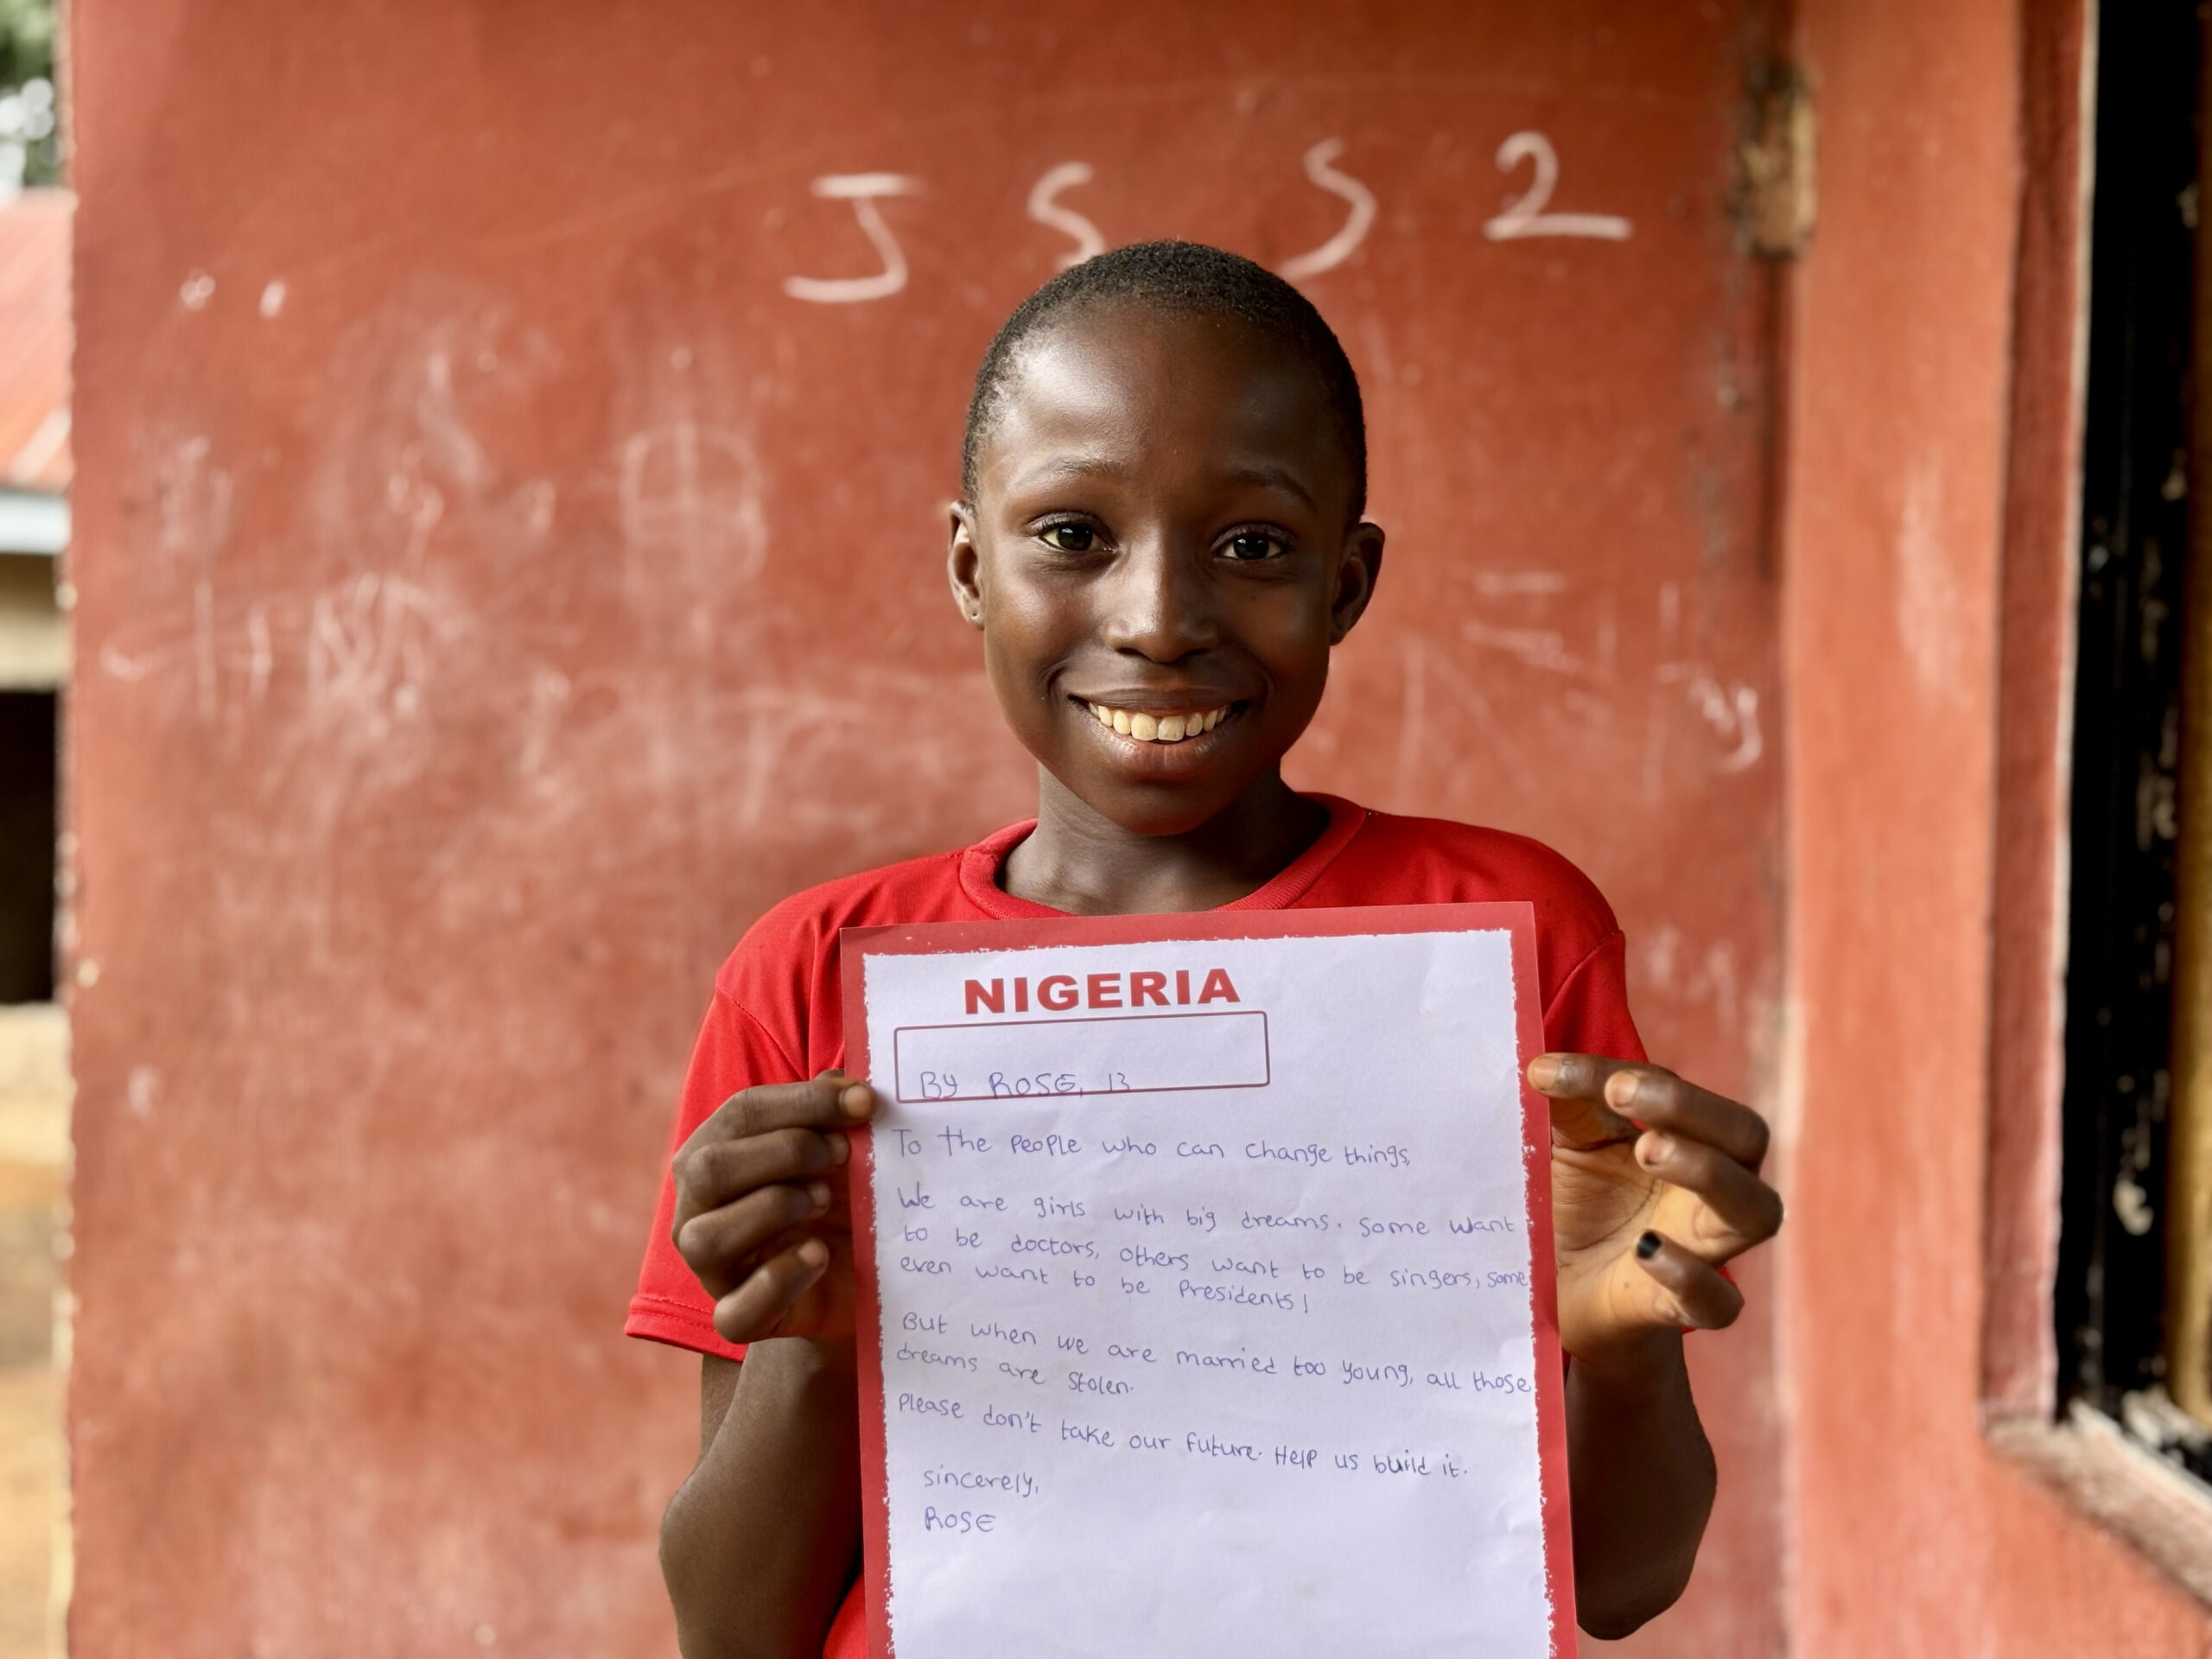 JSS2
NIGERIA
By ROSE, 13
To the people who can change things,
We are girls with big dreams. Some want
to be doctors, others want to be singers, some
even want to be Presidents!
But when we are married too young, all those
dreams are stolen.
Please don't take our future. Help us build it.
sincerely,
ROSE